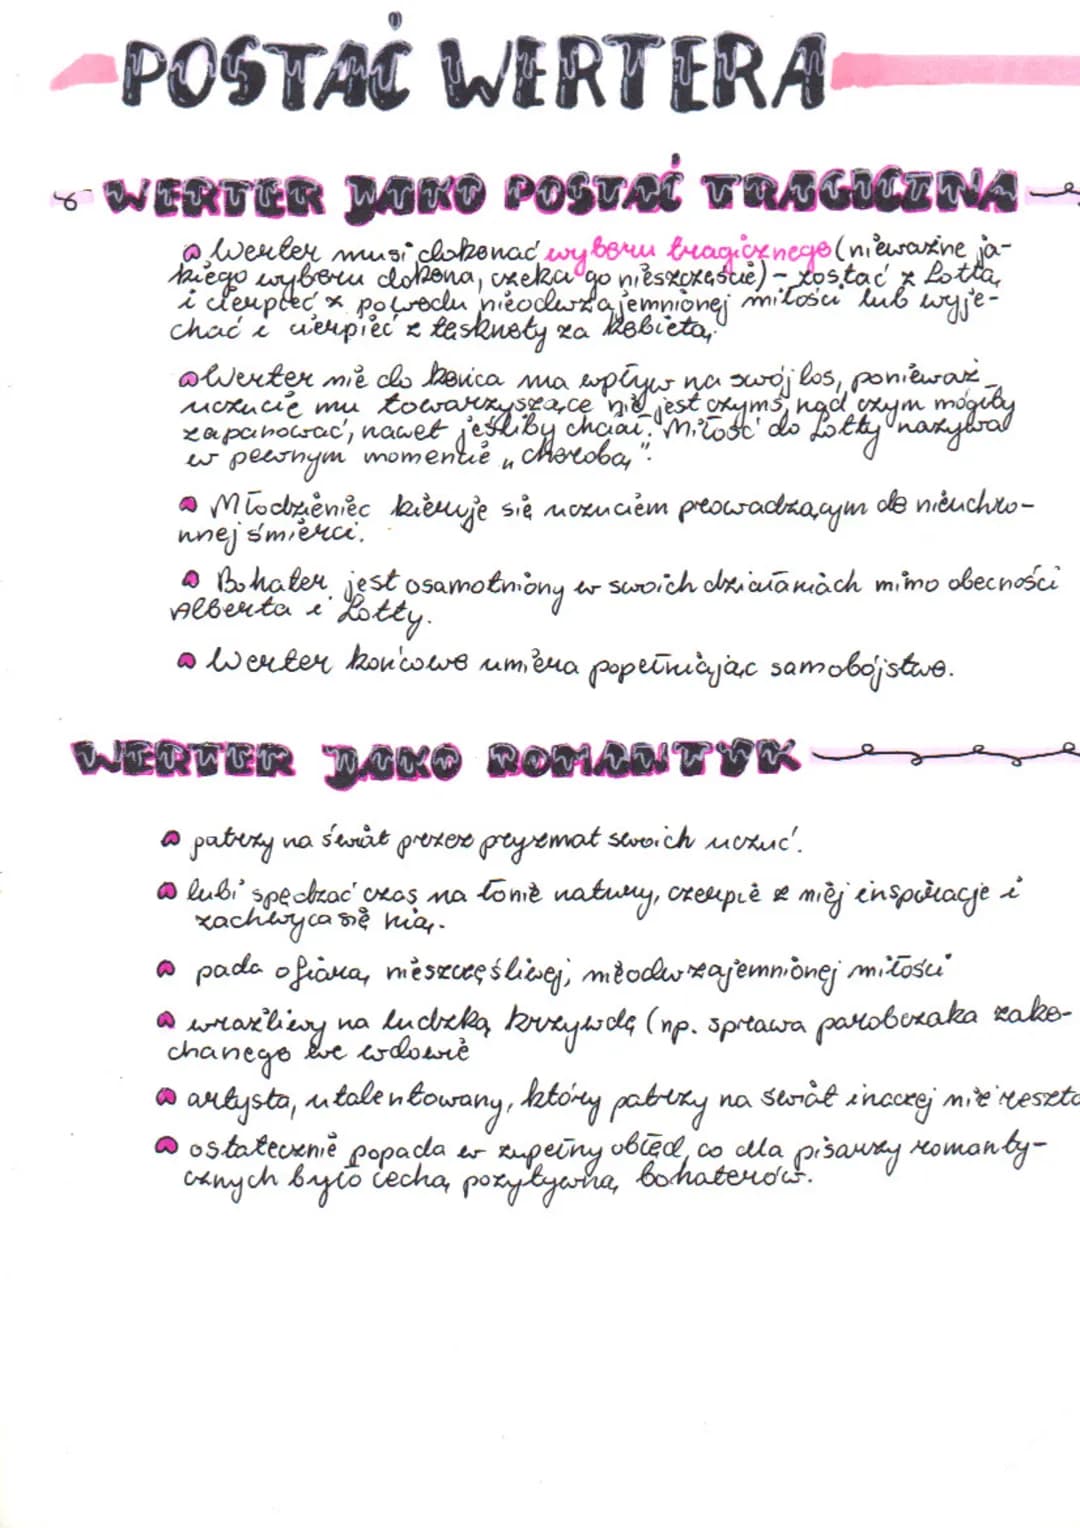 POSTAĆ WERTERA
WERTER JAKO POSTAĆ TRAGICZNA
Werter musi dokonać wyboru tragicznego (nieważne ja-
kiego wyboru dokona, czeka go nieszczęście) - zostać z Lottą
i cierpieć z powodu nieodwzajemnionej miłości lub wyje-
chać i cierpieć z tęsknoty za kobietą.
Werter nie do końca ma wpływ na swój los, ponieważ
uczucie mu towarzyszące nie jest czymś, nad czym mógłby
zapanować, nawet jeśliby chciał. Miłość do Lotty nazywał
w pewnym momencie „chorobą”.
Młodzieniec kieruje się uczuciem prowadzącym do nieuchro-
nnej śmierci.
Bohater jest osamotniony w swoich działaniach mimo obecności
Alberta i Lotty.
Werter końcowo umiera popełniając samobójstwo.
WERTER JAKO ROMANTYK
patrzy na świat przez pryzmat swoich uczuć.
lubi spędzać czas na łonie natury, czerpie z niej inspiracje i
zachwyca się nią.
pada ofiarą nieszczęśliwej, nieodwzajemnionej miłości
wrażliwy na ludzką krzywdę (np. sprawa parobczaka zako-
chanego we wdowie
artysta, utalentowany, który patrzy na świat inaczej niż reszta
ostatecznie popada w zupełny obłęd, co dla pisarzy romanty-
cznych było cechą pozytywną bohaterów.